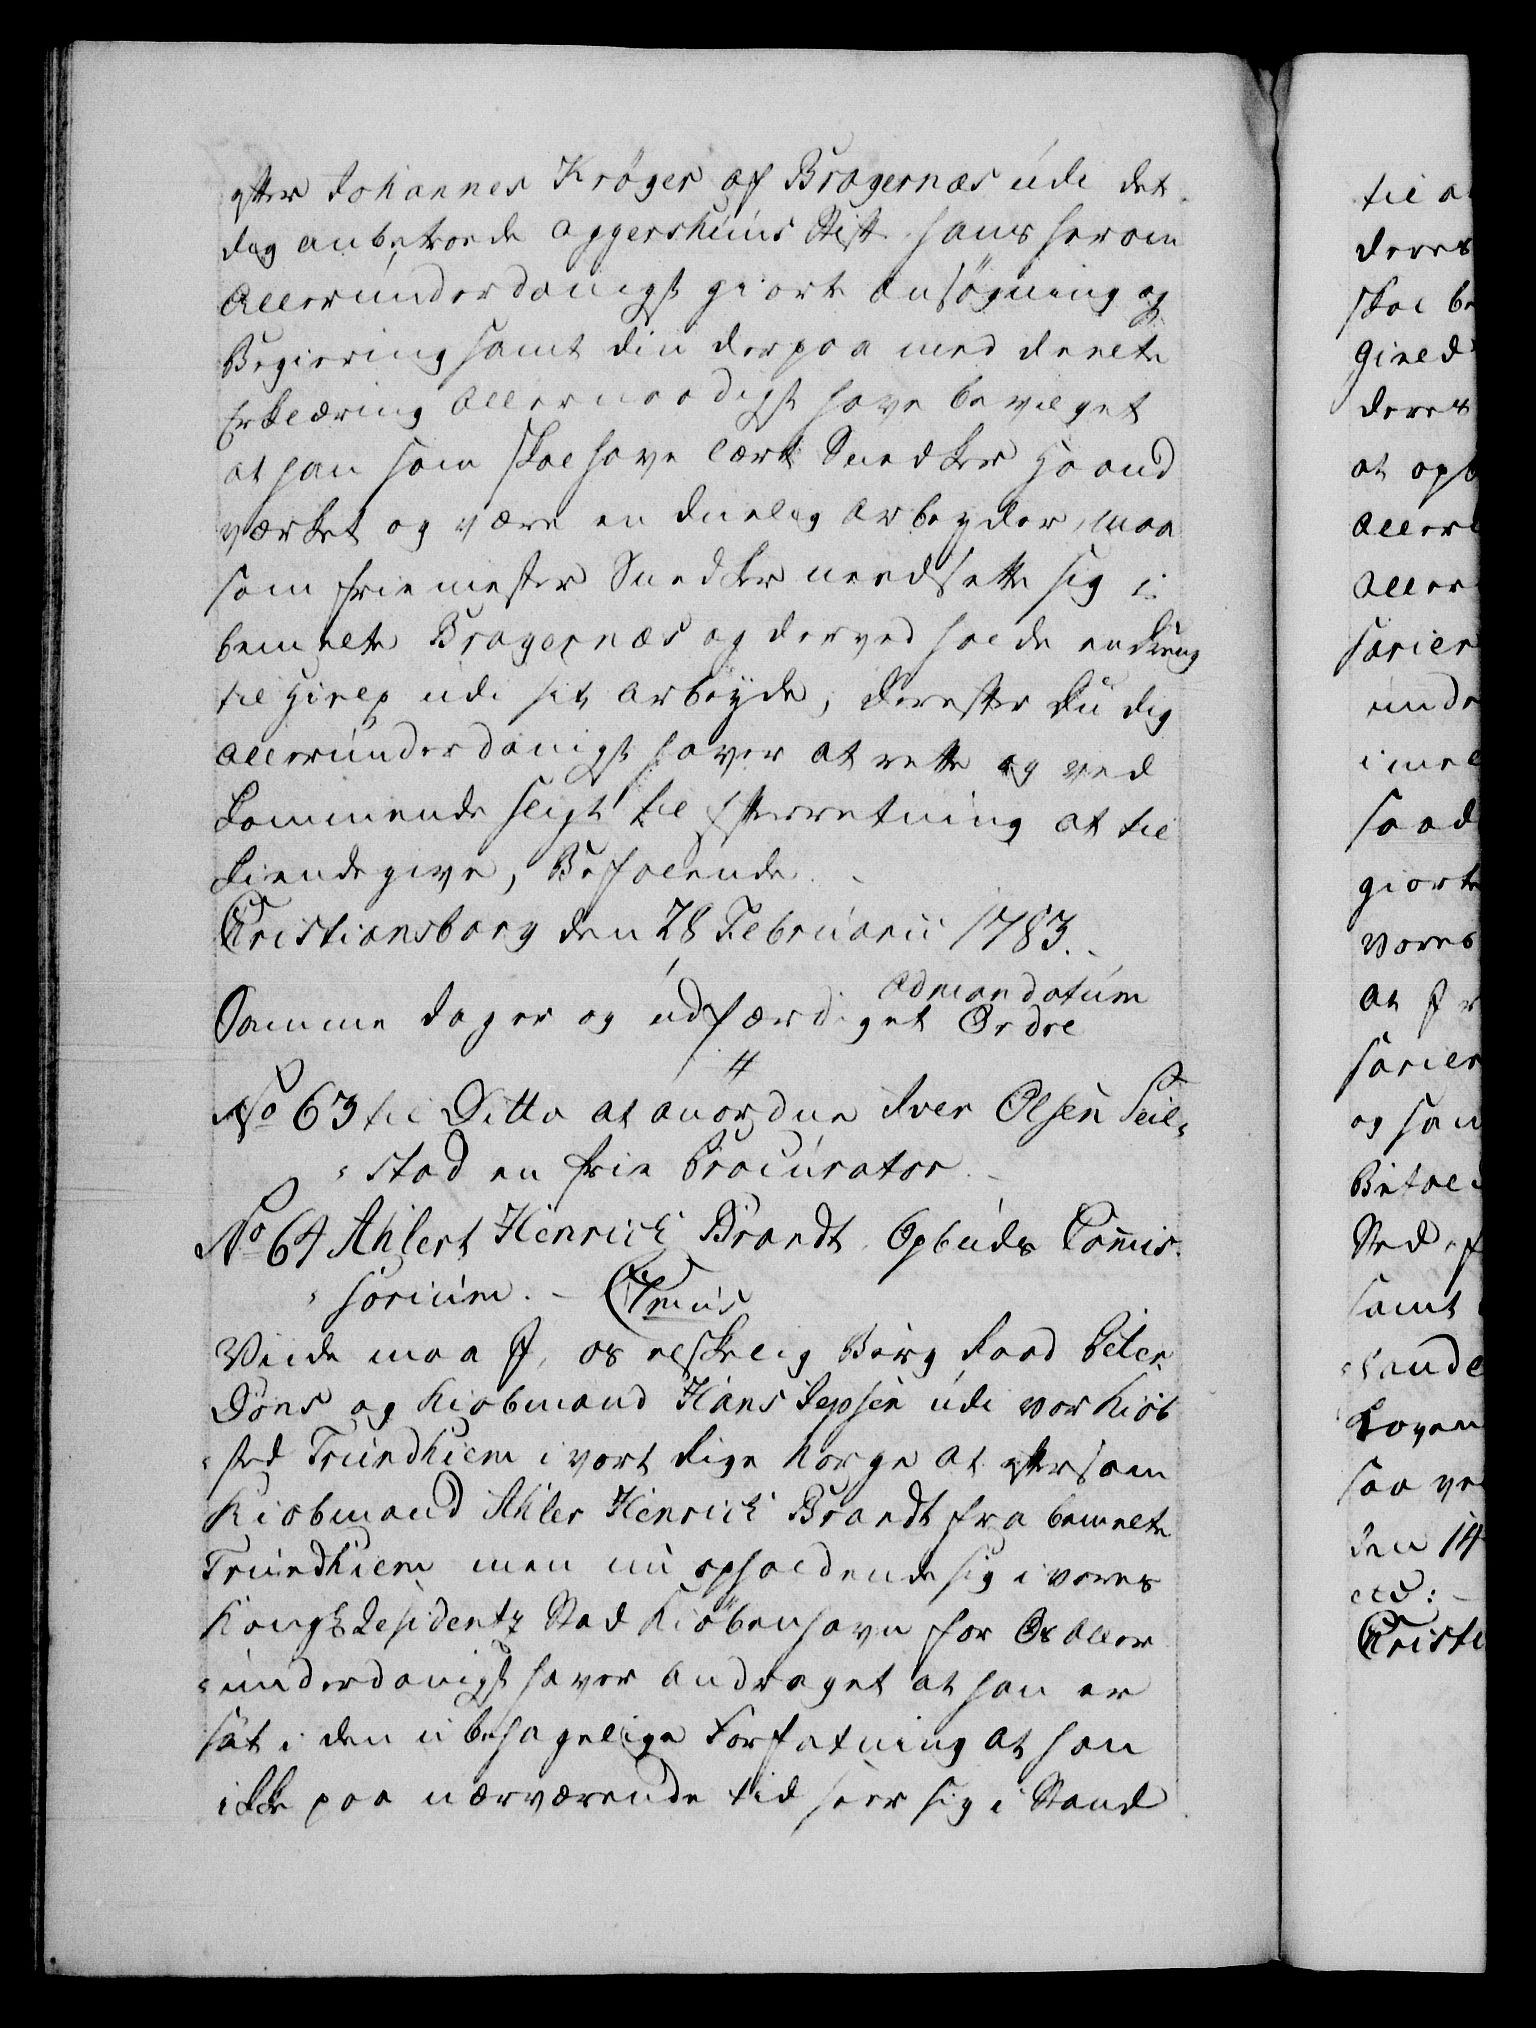 efter Johannes Krøger af Bragernæs udi det
dig anbetroede Aggershuus Stift hans herom
allerunderdanigst giorte Ansøgning og
Begiering samt din derpaa meddeelte
Erklæring allernaadigst have bevilget
at han som skal have lært Snedker Haand
værket og være en duelig Arbeyder, maa
som friemester Snedker needsette sig i
bemelte Bragernæs og derved holde en Dreng
til Hielp udi sit Arbeyde; derefter du dig
allerunderdanigst haver at rette og ved
kommende sligt til Efterretning at til
kiendegive, Befalende.
Christiansborg den 28 Februarii 1783.
admandatum
Samme Dag er og udfærdiget Ordre
No 63 til Ditto at anordne Iver Olsen Seil-
-stad en frie Procurator.
No 64 Ahlert Henrich Brandt Opbuds Commis-
-sorium. - Cmus
Viide maa I, os elskelig Borg Raad Peter
Döns og Kiøbmand Hans Jepsen udi vor Kiøb
-sted Trundhiem i vort Rige Norge at eftersom
Kiøbmand Ahler Henrich Brandt fra bemelte
Trundhiem men nu opholdende sig i vores
Kongl Residentz Stad Kiøbenhavn for Os aller
-underdanigst haver andraget at han er
sat i den ubehagelige Forfatning at han
ikke paa nærværende tid seer sig i Stand
til a
deres
skal be
Gield
deres
at opb
aller
aller
sarier
unde
imel
saad
giorte
vores
at I
sarier
og sam
Befal
Sted
samt
-lande
Loven
saa ve
den 14
etc:
Christi